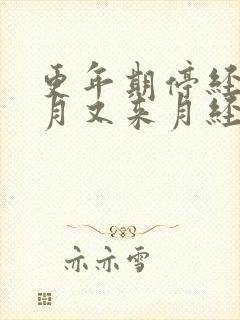 更年期停经
月又来月经
亦亦雪